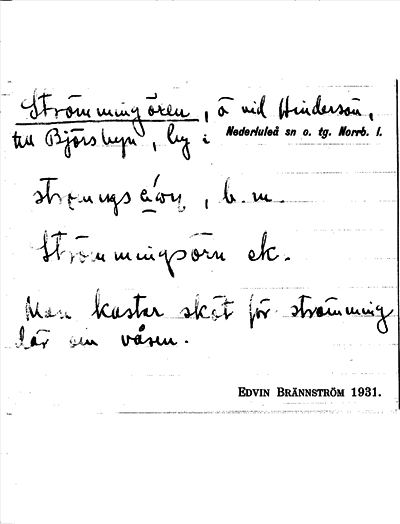 Strömmingören, ö vid Hindersön,
till Björsbyn, by i Nederluleå sn o. tg. Norrb. l.
b. m.
Strömmingsörn ek.
Man kastar sköt för strömming
där om våren.
EDVIN BRÄNNSTRÖM 1931.